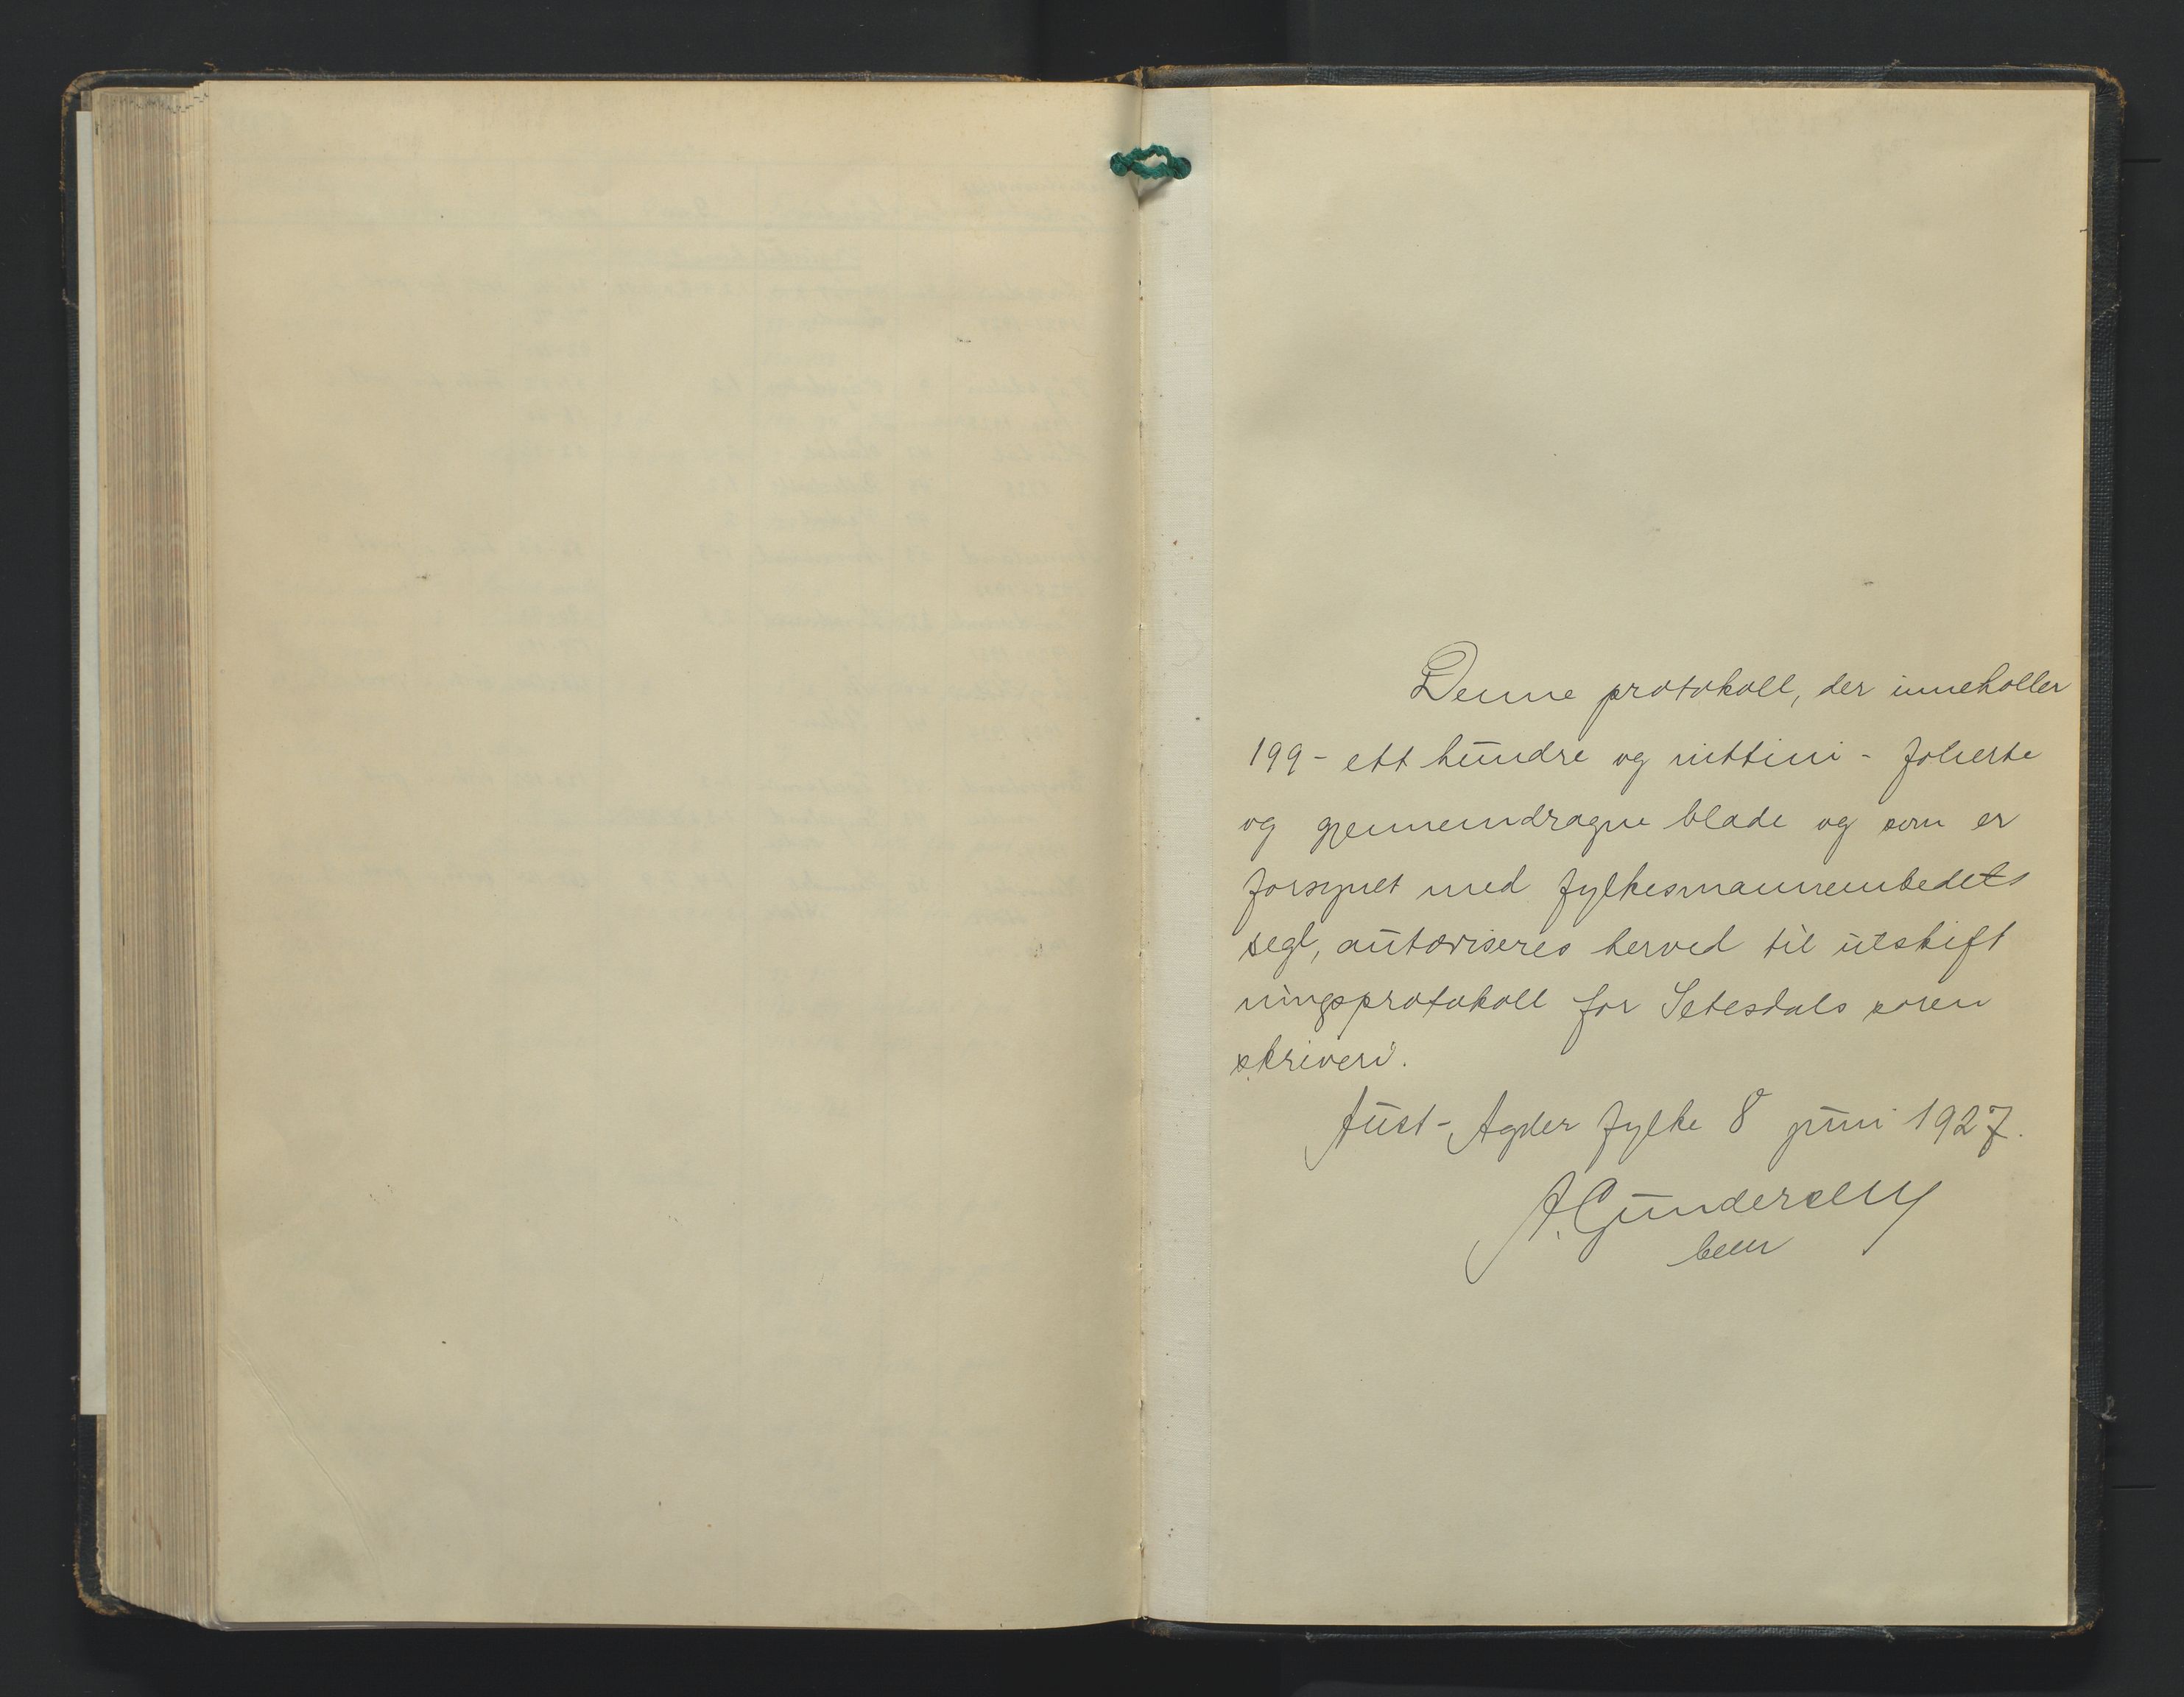 Denne protokoll, der inneholler
199 - ett hundre og nittini - folierte
og gjennemdragne blade og som er
forsynet med fylkesmannembedets
segl, autoriseres herved til utskift
ningsprotokoll for Setesdals soren
skriveri.
Aust-Agder fylke 8 juni 1927.
A. Gundersen